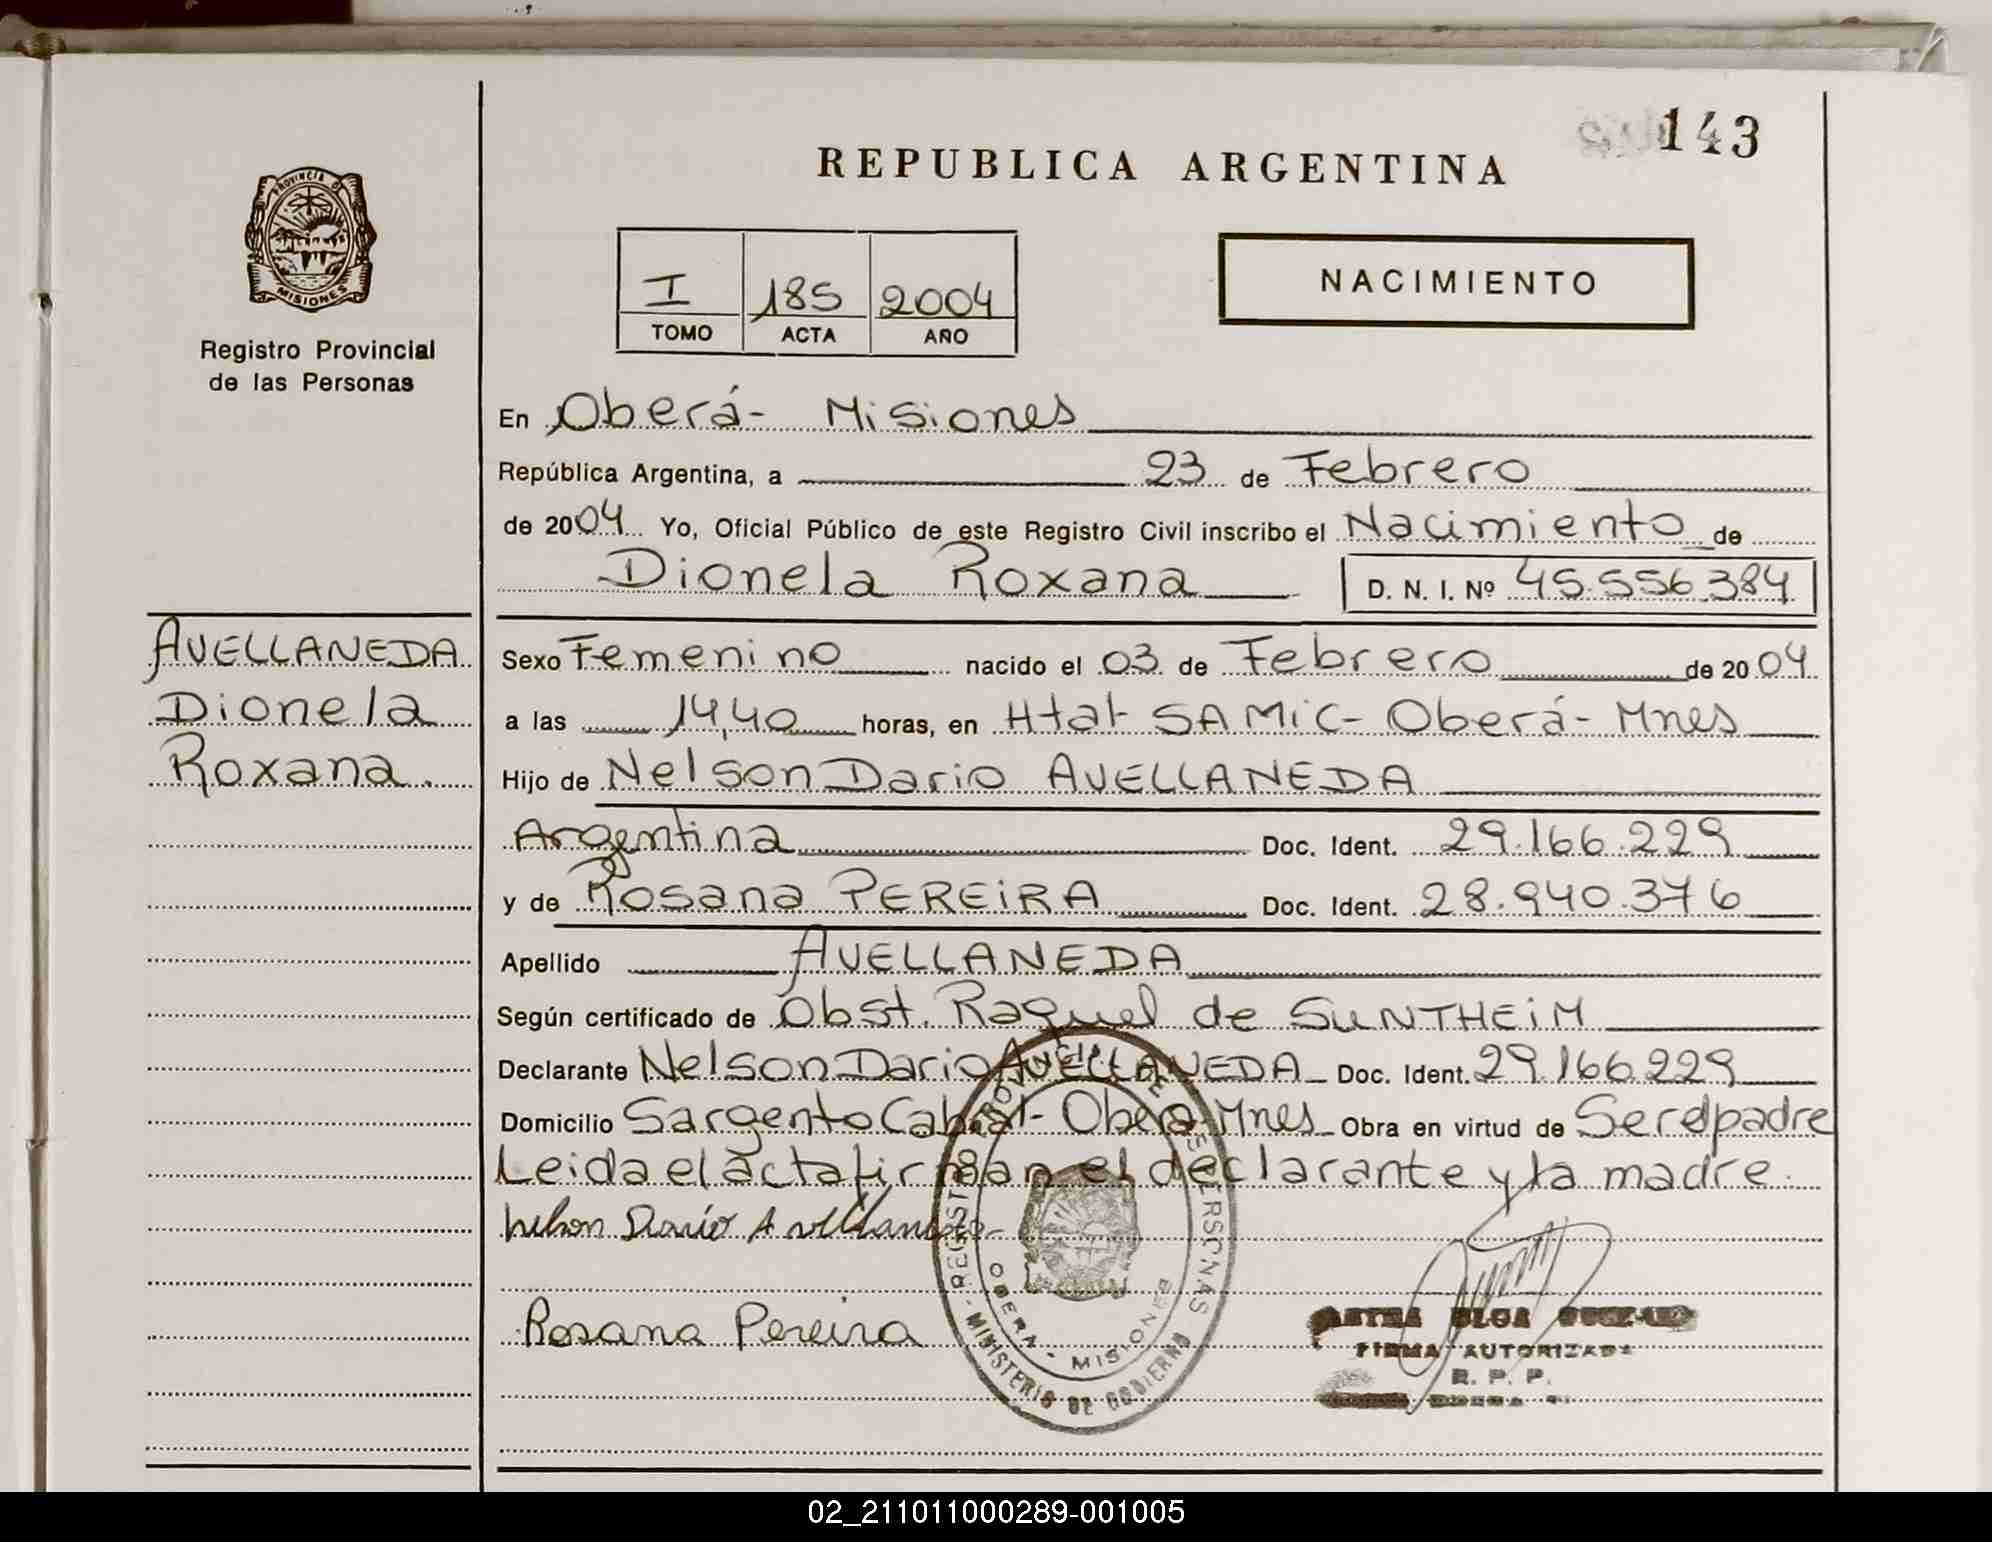 143
REPUBLICA ARGENTINA
PROVINCIA DE
MISIONES
Registro Provincial
de las Personas
I 185 2004
TOMO ACTA AÑO
NACIMIENTO
En Oberá- Misiones
República Argentina, a 23 de Febrero
de 2004 Yo, Oficial Público de este Registro Civil inscribo el Nacimiento de
Dionela Roxana D. N. I. Nº 45.556.384
AVELLANEDA
Dionela
Roxana.
Sexo Femenino nacido el 03 de Febrero de 2004
a las 14,40 horas, en Htal SAMIC- Oberá- Mnes
Hijo de Nelson Dario AVELLANEDA
Argentina Doc. Ident. 29.166.229
y de Rosana PEREIRA Doc. Ident. 28.940.376
Apellido AVELLANEDA
Según certificado de Obst. Raquel de SUNTHEIM
Declarante Nelson Dario AVELLANEDA Doc. Ident. 29.166.229
Domicilio Sargento Cabral- Oberá Mnes Obra en virtud de Ser el padre
Leida el acta firman el declarante y la madre.
Nelson Dario Avellaneda
Rosana Pereira
REGISTRO PROVINCIAL DE LAS PERSONAS
OBERA - MISIONES
MINISTERIO DE GOBIERNO
OLGA
FIRMA AUTORIZADA
R. P. P.
02_211011000289-001005